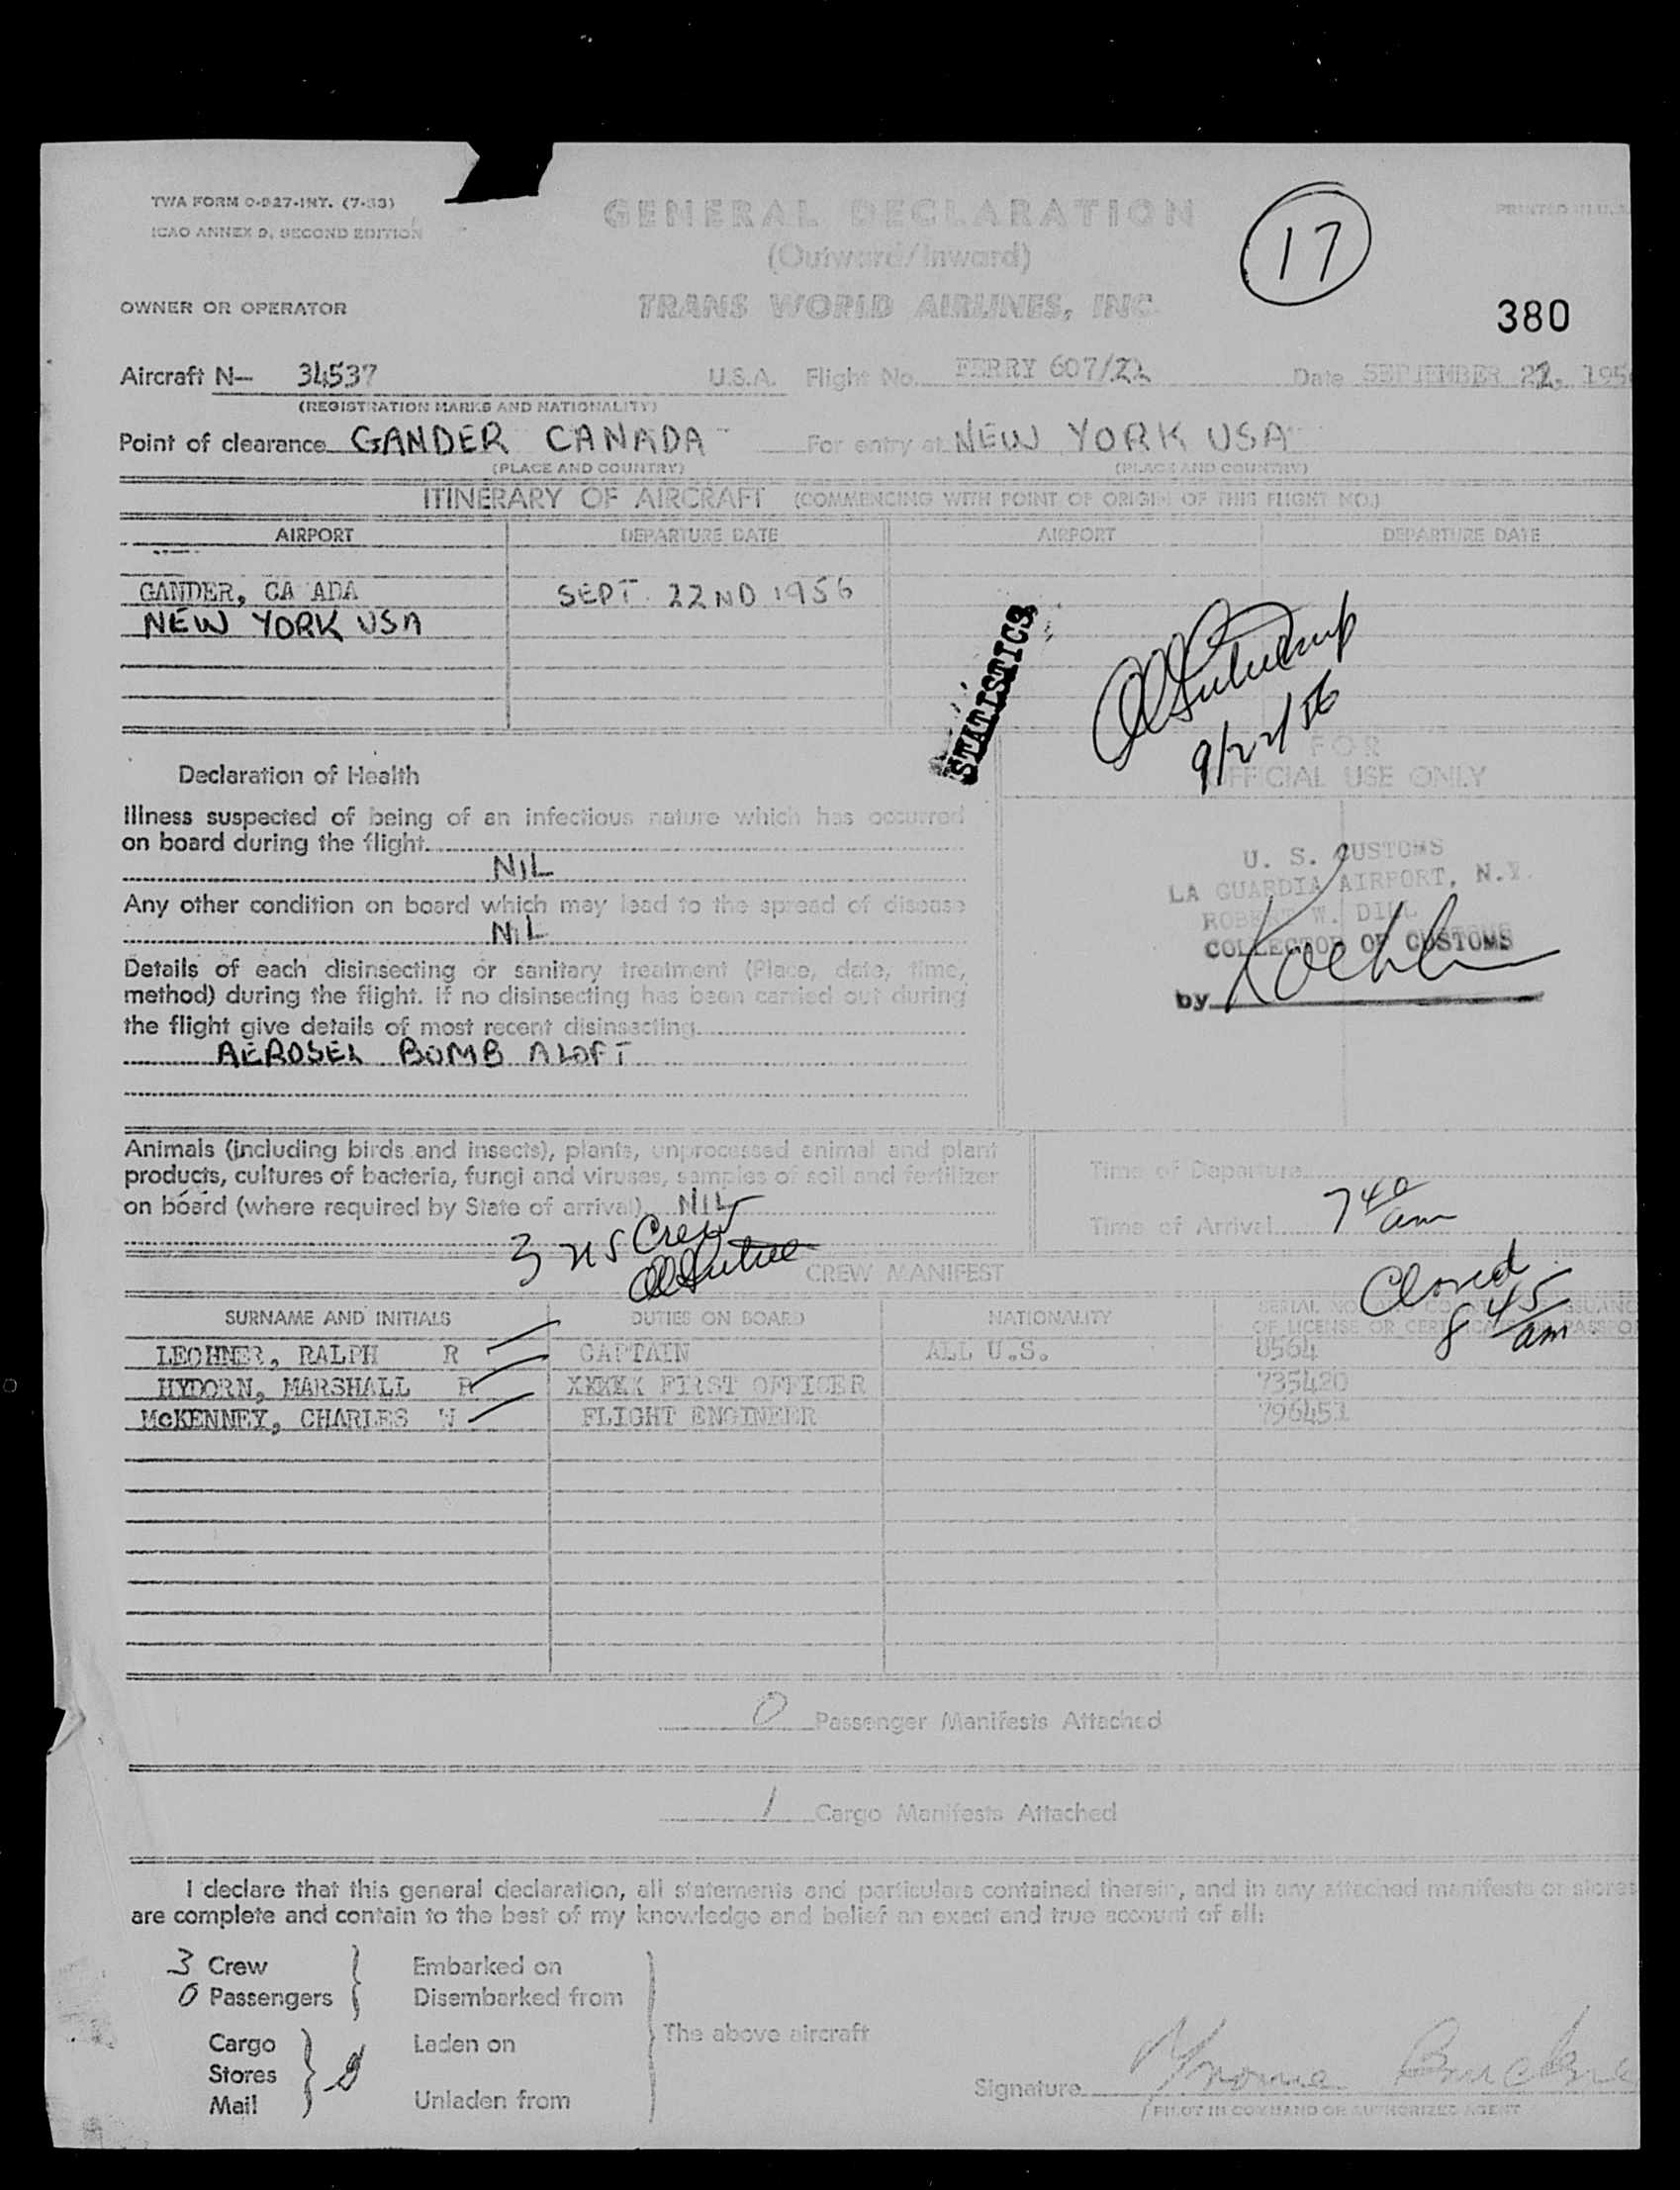 TWA FORM O-927-INT. (7-53)
ICAO ANNEX 9, SECOND EDITION
GENERAL DECLARATION
(Outward/Inward)
PRINTED IN U.S.
17
OWNER OR OPERATOR
TRANS WORLD AIRLINES, INC
380
Aircraft N- 34537 U.S.A. Flight No. FERRY 607/22 Date SEPTEMBER 22, 195
(REGISTRATION MARKS AND NATIONALITY)
Point of clearance GANDER CANADA For entry at NEW YORK USA
(PLACE AND COUNTRY) (PLACE AND COUNTRY)
ITINERARY OF AIRCRAFT (COMMENCING WITH POINT OF ORIGIN OF THIS FLIGHT NO.)
AIRPORT DEPARTURE DATE AIRPORT DEPARTURE DATE
GANDER, CA ADA SEPT. 22ND 1956
NEW YORK USA
STATISTICS
9/22/56
FOR
OFFICIAL USE ONLY
Declaration of Health
Illness suspected of being of an infectious nature which has occurred
on board during the flight
NIL
Any other condition on board which may lead to the spread of disease
NIL
Details of each disinsecting or sanitary treatment (Place, date, time,
method) during the flight. If no disinsecting has been carried out during
the flight give details of most recent disinsecting
AEROSEL BOMB ALOFT
U. S. CUSTOMS
LA GUARDIA AIRPORT, N.Y.
ROBERT W. DILL
COLLECTOR OF CUSTOMS
by Koehler
Animals (including birds and insects), plants, unprocessed animal and plant
products, cultures of bacteria, fungi and viruses, samples of soil and fertilizer
on board (where required by State of arrival) NIL
Time of Departure
Time of Arrival 7 40 am
3 US Crew
Closed
8 45 am
CREW MANIFEST
SURNAME AND INITIALS DUTIES ON BOARD NATIONALITY SERIAL NO.
OF LICENSE OR CERTIFICATE OR PASSPO
LECHNER, RALPH R CAPTAIN ALL U.S. 8564
HYDORN, MARSHALL R XXXXX FIRST OFFICER 735420
McKENNEY, CHARLES W FLIGHT ENGINEER 796451
0 Passenger Manifests Attached
1 Cargo Manifests Attached
I declare that this general declaration, all statements and particulars contained therein, and in any attached manifests or stores
are complete and contain to the best of my knowledge and belief an exact and true account of all:
3 Crew
0 Passengers
Embarked on
Disembarked from
Cargo
Stores
Mail
Laden on
Unladen from
The above aircraft
Signature
PILOT IN COMMAND OR AUTHORIZED AGENT